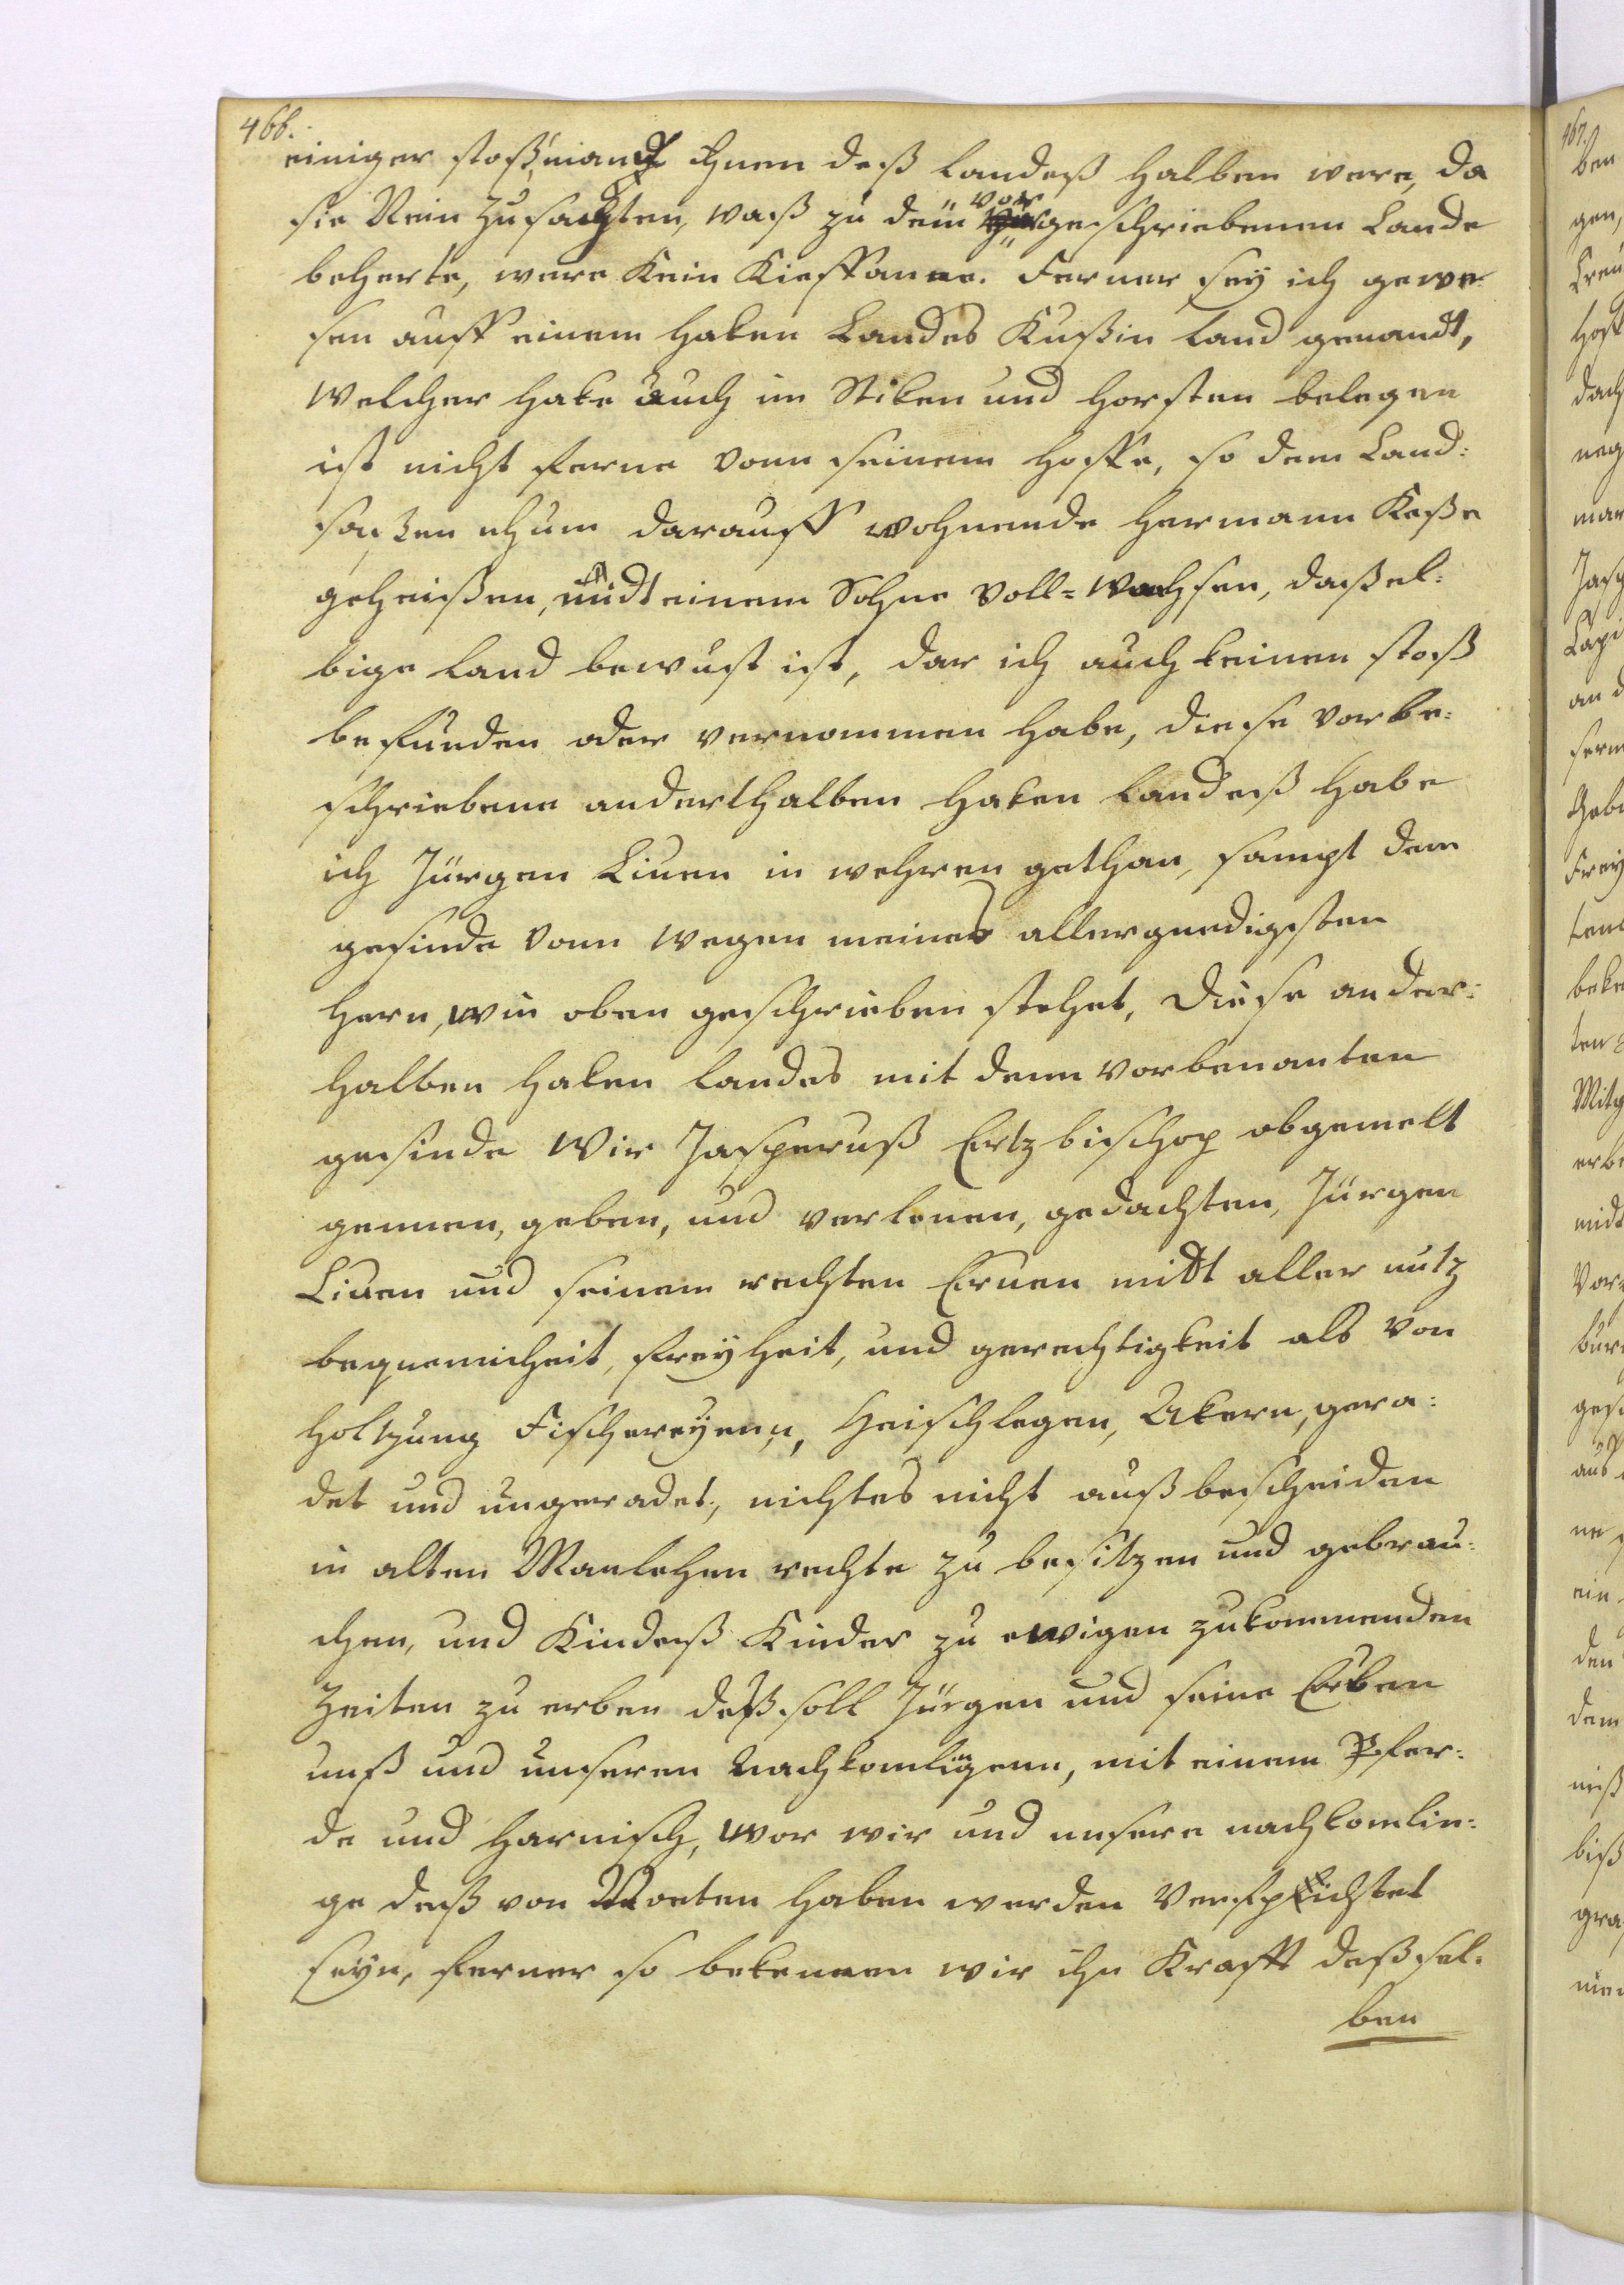 466.
einiger stoß, mangk ihnen deß landeß halben were, da
sie Nein zu sachten, waß zu dem vorgeschriebenen Lande
beherte, were Kein Kieffanne. Ferner sey ich gewe-
sen auff einem haken Landes Kußin land genandt,
welcher hake auch im Stiken und horsten belegen
ist nicht ferne vonn seinem hoffe, so dem Land:
saßen ehum darauff wohnende Hermann Keße
geheißen, midt einem Sohne voll-wachsen, daßel:
bige land bewust ist, dar ich auch keinen stoß
befunden oder vernommen habe, diese vorbe:
schriebene anderthalben haken landeß habe
ich Jürgen Liuen in wehren gethan, sampt dem
gesinde vonn wegen meines allergnedigsten
hern, wie oben geschrieben stehet, diese ander:
halben haken landes mit denn vorbenanten
gesinde Wir Jasperuß Ertzbischop obgemelt
gennen, geben, und verlenen, gedachten, Jürgen
Liuen und seinem rechten Eruen midt aller nutz
bequemicheit, freyheit, und gerechtigkeit als von
holtzung Fischereyenn, Heischlegen, Akern, gera:
det und ungeradet, nichtes nicht außbescheiden
in alten Manlehen rechte zu besitzen und gebrau:
chen, und Kindeß Kinder zu ewigen zukommenden
Zeiten zu erben deß soll Jürgen und seine Erben
unß und unseren Nachkomlingenn, mit einem Pfer:
de und Harnisch, wor wir und unsere nachkomlin:
ge deß von Noeten haben werden verpflichtet
seyn, ferner so bekennen wir ihn Krafft deßsel:
ben